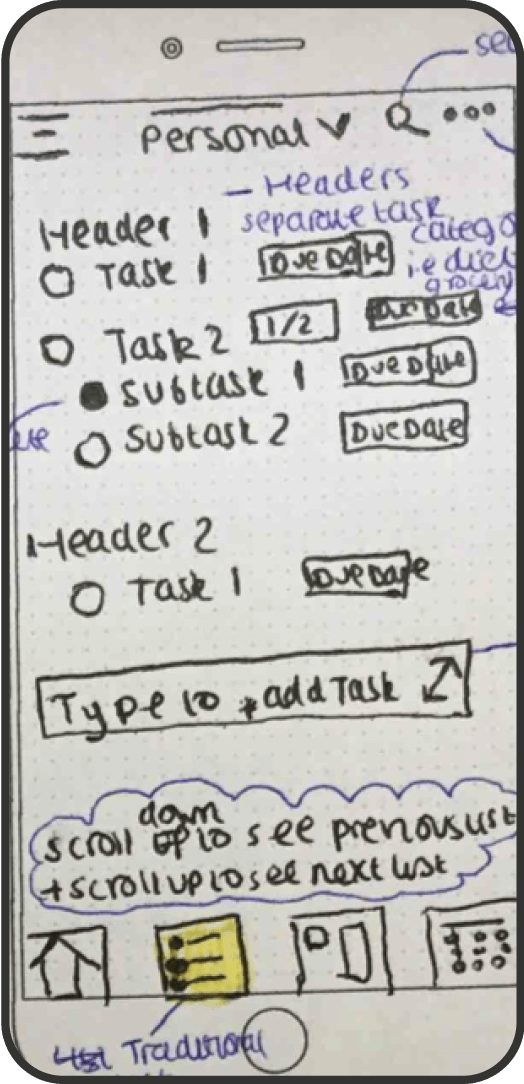 Personal
— Headers
separate task
Header 1
Task 1
Due Date
i.e
Task 2
1/2
Due Date
Subtask 1
Due Date
Subtask 2
Due Date
Header 2
Task 1
Due Date
Type to + add Task
down
scroll up to see previous list
+ scroll up to see next list
Traditional